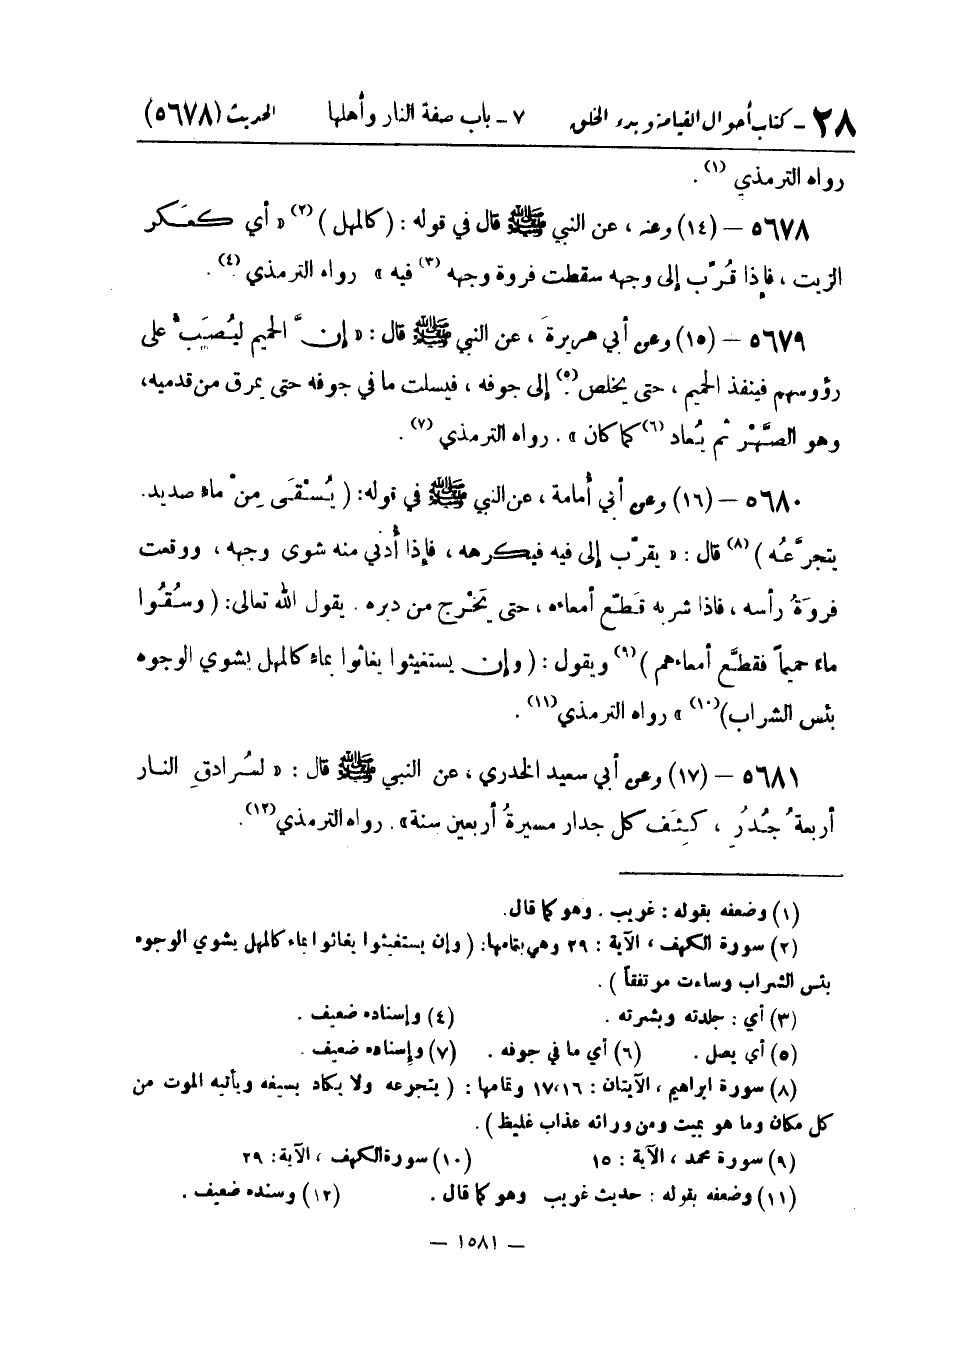 ٢٨ – كتاب أحوال القيامة وبدء الخلق ٧ – باب صفة النار وأهلها الحديث (٥٦٧٨)
رواه الترمذي (١) .
٥٦٧٨ – (١٤) وعنه ، عن النبي ﷺ قال في قوله : ( كالمهل ) (٢) « أي كعَكر
الزيت ، فإذا قُرّب إلى وجهه سقطت فروة وجهه (٣) فيه » رواه الترمذي (٤) .
٥٦٧٩ – (١٥) وعن أبي هريرةَ ، عن النبي ﷺ قال : « إنَّ الحميم ليُصَبّ على
رؤوسهم فينفذ الحميم ، حتى يخلص (٥) إلى جوفه ، فيسلت ما في جوفه حتى يمرق من قدميه،
وهو الصَّهْر ثم يُعاد (٦) كما كان » . رواه الترمذي (٧) .
٥٦٨٠ – (١٦) وعن أبي أُمامة ، عن النبي ﷺ في قوله: ( يُسْقَى مِنْ ماء صديد.
يتجرَّعُه ) (٨) قال : « يقرّب إلى فيه فيكرهه ، فإذا أُدْني منه شوى وجهه ، ووقعت
فروَةُ رأسه ، فاذا شربه قَطّع أمعاءه ، حتى يَخْرج من دبره . يقول الله تعالى: ( وسُقُوا
ماء حميماً فقطَّع أمعاءهم ) (٩) ويقول : ( وإن يستغيثوا يغاثوا بماء كالمهل يشوي الوجوه
بئس الشراب) (١٠) » رواه الترمذي (١١) .
٥٦٨١ – (١٧) وعن أبي سعيد الخدري ، عن النبي ﷺ قال : « لسُرادقِ النار
أربعةُ جُدُرٍ ، كِثَف كل جدار مسيرةُ أربعين سنة». رواه الترمذي (١٢).
(١) وضعفه بقوله : غريب . وهو كما قال.
(٢) سورة الكهف ، الآية : ٢٩ وهي بتمامها: ( وإن يستغيثوا يغاثوا بماء كالمهل يشوي الوجوه
بئس الشراب وساءت مرتفقاً ) .
(٣) أي : جلدته وبشرته . (٤) وإسناده ضعيف .
(٥) أي يصل . (٦) أي ما في جوفه . (٧) وإسناده ضعيف .
(٨) سورة ابراهيم ، الآيتان : ١٧،١٦ وتمامها : ( يتجرعه ولا يكاد يسيغه ويأتيه الموت من
كل مكان وما هو بميت ومن ورائه عذاب غليظ ) .
(٩) سورة محمد ، الآية : ١٥ (١٠) سورة الكهف ، الآية : ٢٩
(١١) وضعفه بقوله : حديث غريب وهو كما قال . (١٢) وسنده ضعيف .
– ١٥٨١ –